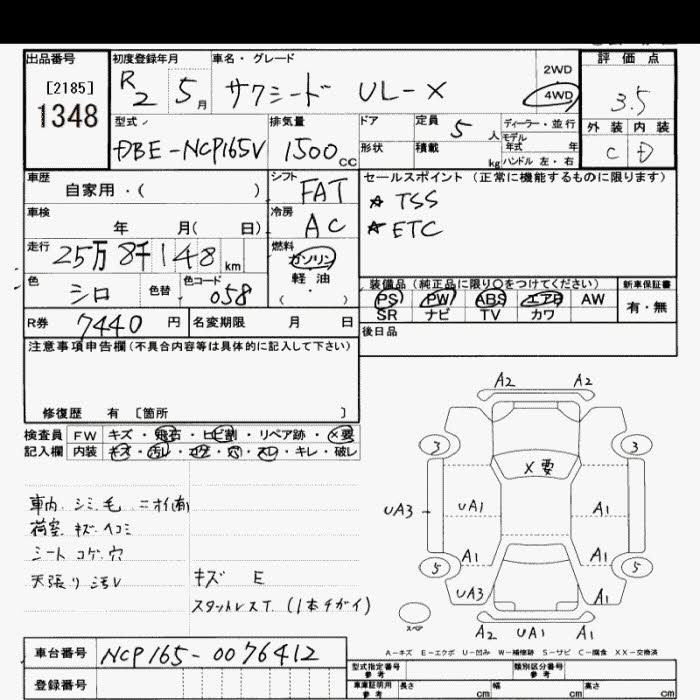 出品番号 初度登録年月 車名・グレード 2WD 評価点
[2185] R2 5月 サクシード UL-X 4WD 3.5
1348
型式 排気量 ドア 定員 5人 ディーラー・並行 外装 内装
DBE-NCP165V 1500cc 形状 積載 kg モデル年式 年 C D
ハンドル 左・右
車歴 シフト セールスポイント (正常に機能するものに限ります)
自家用・( ) FAT ☆ TSS
車検 年 月( 日) 冷房 AC ☆ ETC
走行 25万8千148km 燃料 ガソリン
軽油
( ・ )
色 シロ 色替 色コード 058 装備品 (純正品に限り○をつけてください) 新車保証書
PS PW ABS エアB AW 有・無
SR ナビ TV カワ
R券 7440円 名変期限 月 日 後日品
注意事項申告欄(不具合内容等は具体的に記入して下さい)
修復歴 有 [箇所 ]
検査員 FW キズ・飛石・ヒビ割・リペア跡・×要
記入欄 内装 キズ・汚レ・コゲ・穴・スレ・キレ・破レ
車内 シミ 毛 ニオイ(有)
荷室 キズ ヘコミ
シート コゲ 穴
天張り 汚レ キズ E
スタットレスT.(1本チガイ)
A2 A2
3 3
X要
UA3 UA1 A1
A1 A1
5 5
UA3 A1
A2 UA1 A1
スペア
A-キズ E-エクボ U-凹み W-補修跡 S-サビ C-腐食 XX-交換済
車台番号 NCP165-0076412
型式指定番号 参考 類別区分番号 参考
登録番号 車庫証明用 参考 長さ cm 幅 cm 高さ cm